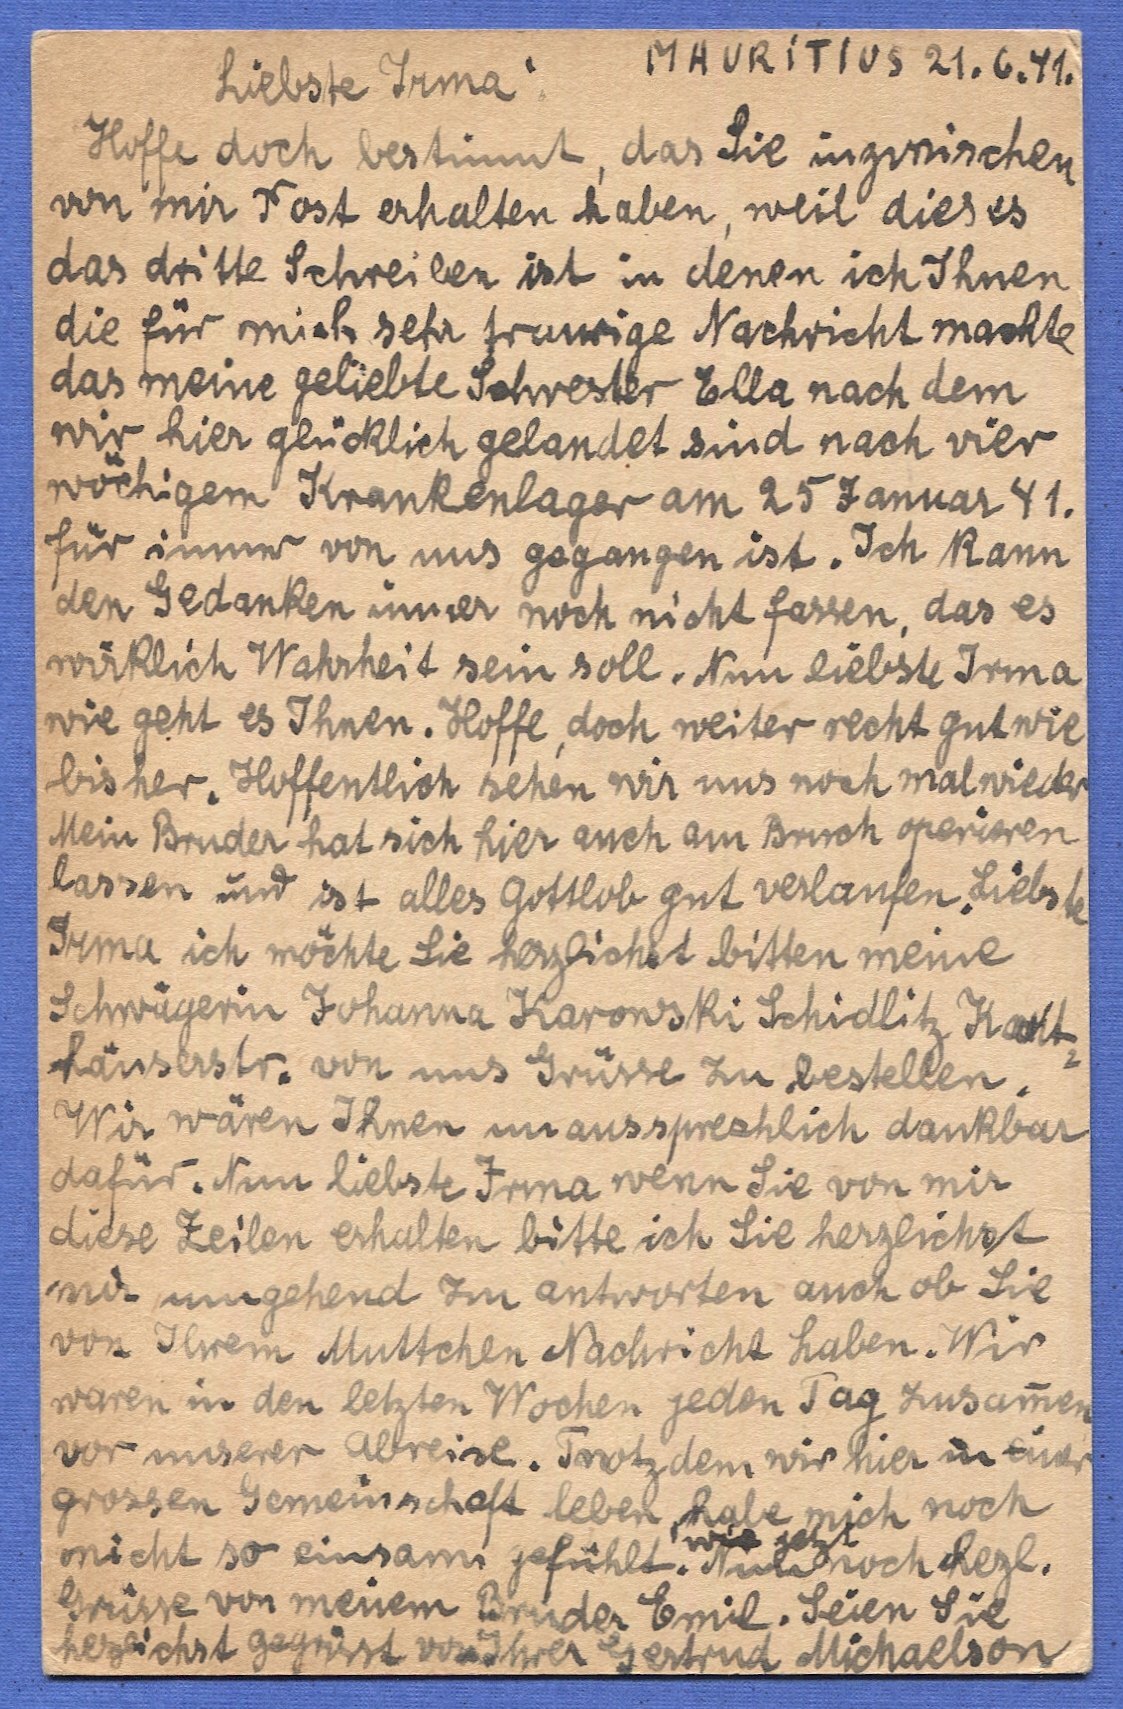 MAURITIUS 21.6.41.
Liebste Irma!
Hoffe doch bestimmt, das Sie inzwischen
von mir Post erhalten haben, weil dieses
das dritte Schreiben ist in denen ich Ihnen
die für mich sehr traurige Nachricht machte
das meine geliebte Schwester Ella nach dem
wir hier glücklich gelandet sind nach vier
wöchigem Krankenlager am 25 Januar 41.
für immer von uns gegangen ist. Ich kann
den Gedanken immer noch nicht fassen, das es
wirklich Wahrheit sein soll. Nun liebste Irma
wie geht es Ihnen. Hoffe, doch weiter recht gut wie
bisher. Hoffentlich sehen wir uns noch mal wieder
Mein Bruder hat sich hier auch am Bruch operieren
lassen und ist alles Gottlob gut verlaufen. Liebste
Irma ich möchte Sie herzlichst bitten meine
Schwägerin Johanna Karowski Schidlitz Kart-
häuserstr. von uns Grüsse zu bestellen.
Wir wären Ihnen unaussprechlich dankbar
dafür. Nun liebste Irma wenn Sie von mir
diese Zeilen erhalten bitte ich Sie herzlichst
mir umgehend zu antworten auch ob Sie
von Ihrem Muttchen Nachricht haben. Wir
waren in den letzten Wochen jeden Tag zusam̅en
vor unserer Abreise. Trotzdem wir hier in einer
grossen Gemeinschaft leben, habe mich noch
nicht so einsam gefühlt wie jetzt. Nun noch hezl.
Grüsse von meinem Bruder Emil. Seien Sie
herzlichst gegrüsst von Ihrer Gertrud Michaelson